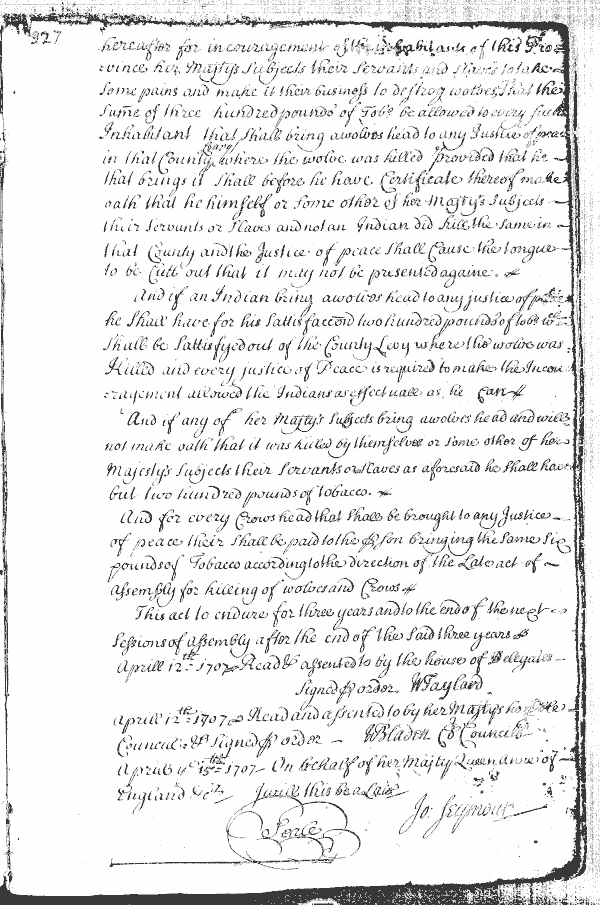 927
hereafter for incouragement of the inhabitants of this Pro=
=vince her Majtys Subjects their Servants and Slaves to take
Some pains and make it their business to destroy wolves, that the
Sume of three hundred pounds of Tobo be allowed to every such
Inhabitant that Shall bring a wolves head to any Justice of peace
in that County where the wolve was killed provided that he
that brings it Shall before he have Certificate thereof make
oath that he himself or Some other of her Majtys Subjects
their Servants or Slaves and not an Indian did kill the same in
that County and the Justice of peace Shall Cause the tongue
to be Cutt out that it may not be presented againe.
And if an Indian bring a wolves head to any justice of peace
he Shall have for his Sattisfaccon two hundred pounds of tobo wch
Shall be Sattisfyed out of the County Levy where the wolve was
Killed and every justice of Peace is required to make the Incou
=ragement allowed the Indians as effectuall as he Can
And if any of her Majtys Subjects bring a wolves head and will
not make oath that it was killed by themselves or some other of her
Majestys Subjects their Servants or slaves as aforesaid he Shall have
but two hundred pounds of tobacco.
And for every Crows head that Shall be brought to any Justice
of peace their Shall be paid to the person bringing the Same Six
pounds of Tobacco according to the direction of the Late act of
assembly for killing of wolves and Crows
This act to endure for three years and to the end of the next
Sessions of assembly after the end of the said three years
Aprill 12th 1707 Read & assented to by the house of Delegates
Signed p order. W Taylard
Aprill 12th 1707 Read and assented to by her Majtys hono
Council & Signed p order W Bladen Cl Council
Aprill ye 15th 1707 On behalf of her Majty Queen Anne of
England &ca I will this be a Law
Jo: Seymour
Seale